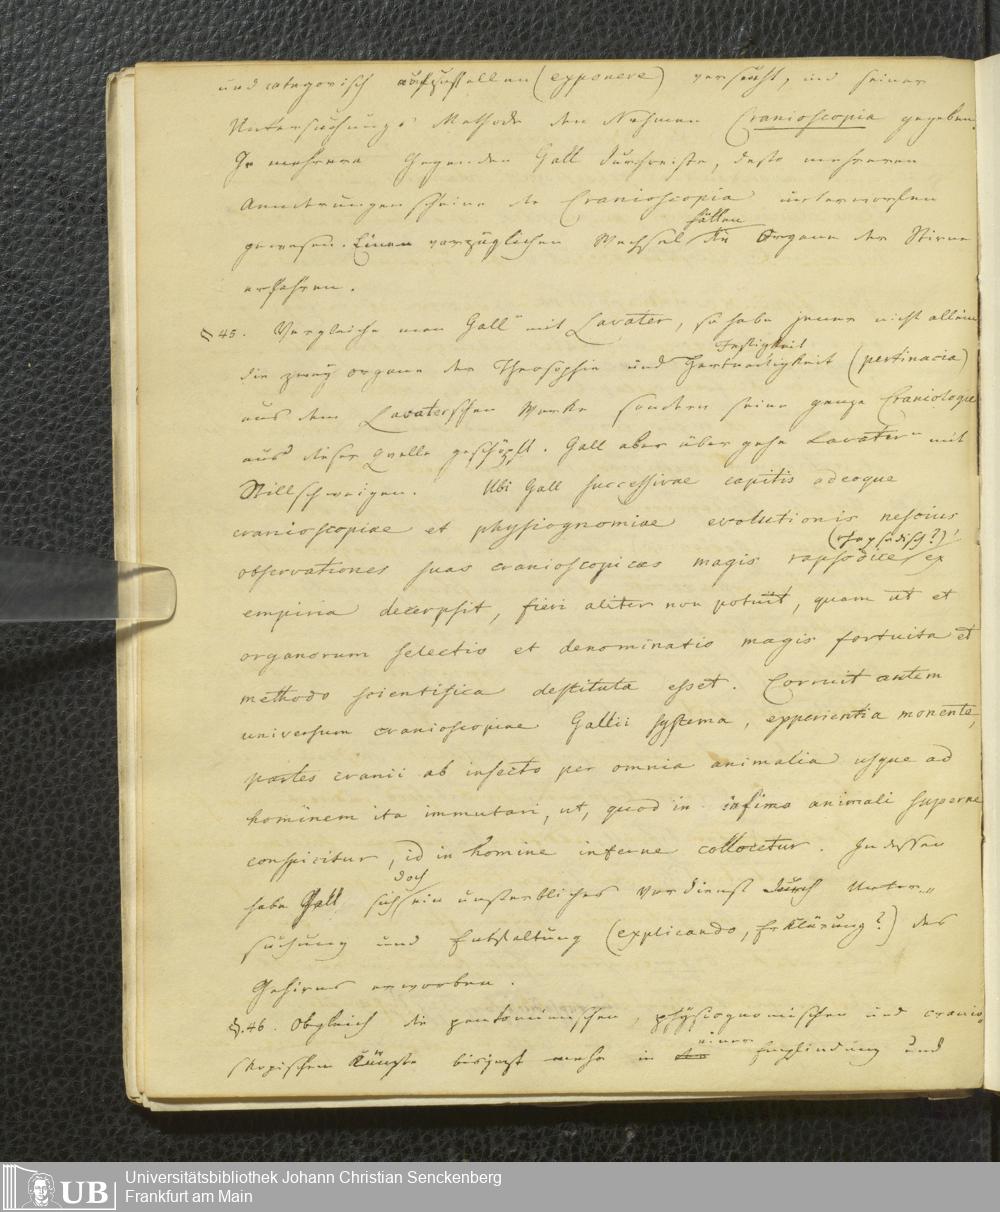 und categorisch aufzustellen (exponere) versucht, und seiner
Untersuchungs Methode den Nahmen Cranioscopia gegeben.
Je mehrere Gegenden Gall durchreiste, desto mehreren
Aenderungen scheine die Cranioscopia unterworfen
gewesen. Einen vorzüglichen Wechsel hätten die Organe der Stirne
erfahren.
§ 45. Vergleiche man Gall mit Lavater, so habe jener nicht allein
die zwey organe der Theosophie und Festigkeit Hartnäckigkeit (pertinacia)
aus dem Lavaterschen Werke sondern seine ganze Craniologie
aus dieser Quelle geschöpft. Gall aber über gehe Lavatern mit
Stillschweigen. Ubi Gall successivae capitis adeoque
cranioscopiae et physiognomiae evolutionis nescius
(rhapsodisch?)!
observationes suas cranioscopicas magis rapsodice ex
empiria decerpsit, fieri aliter non potuit, quam ut et
organorum selectio et denominatio magis fortuita et
methodo scientifica destituta esset. Corruit autem
universum cranioscopiae Gallii systema, experientia monente,
partes cranii ab insecto per omnia animalia usque ad
hominem ita immutari, ut, quod in infimo animali superne
conspicitur, id in homine inferne collocetur. Indessen
habe Gall sich doch ein unsterbliches Verdienst durch Unter-
suchung und Entfaltung (explicando, Erklärung?) des
Gehirns erworben.
§. 46. Obgleich die pantomimischen, physiognomischen und cranio
skopischen Künste bisjezt mehr in einer Empfindung und
Universitätsbibliothek Johann Christian Senckenberg
Frankfurt am Main
UB